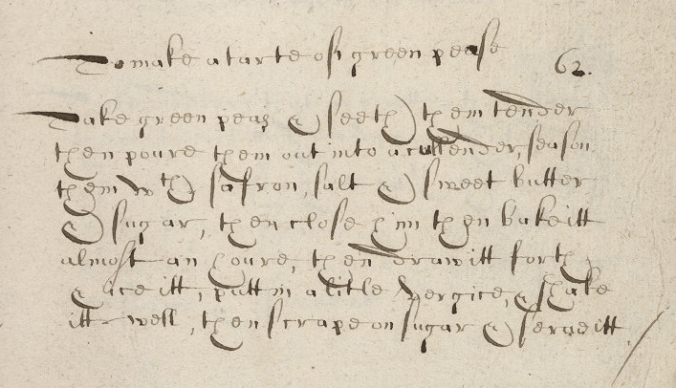 To make a tarte of green pease
62.
Take green peas & seeth them tender
then poure them out into a cullender, season
them wth safron, salt & sweet butter
& sugar, then close him then bake itt
almost an houre, then draw itt forth
& ice itt, putt in a litle vergice, & shake
itt well, then scrape on sugar & serve itt